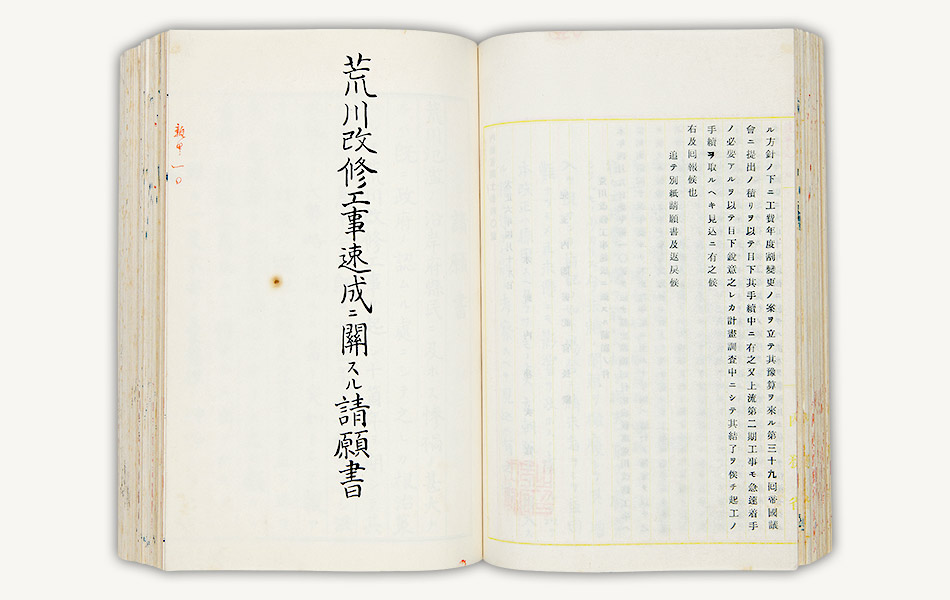 ル方針ノ下ニ工費年度割變更ノ案ヲ立テ其豫算ヲ來ル第三十九囘帝國議
會ニ提出ノ積リヲ以テ目下其手續中ニ有之又上流第二期工事モ急速着手
ノ必要アルヲ以テ目下銳意之レカ計畫調査中ニシテ其結了ヲ候チ起工ノ
手續ヲ取ルヘキ見込ニ有之候
右及囘報候也
追テ別紙請願書及返戻候
荒川改修工事速成ニ關スル請願書